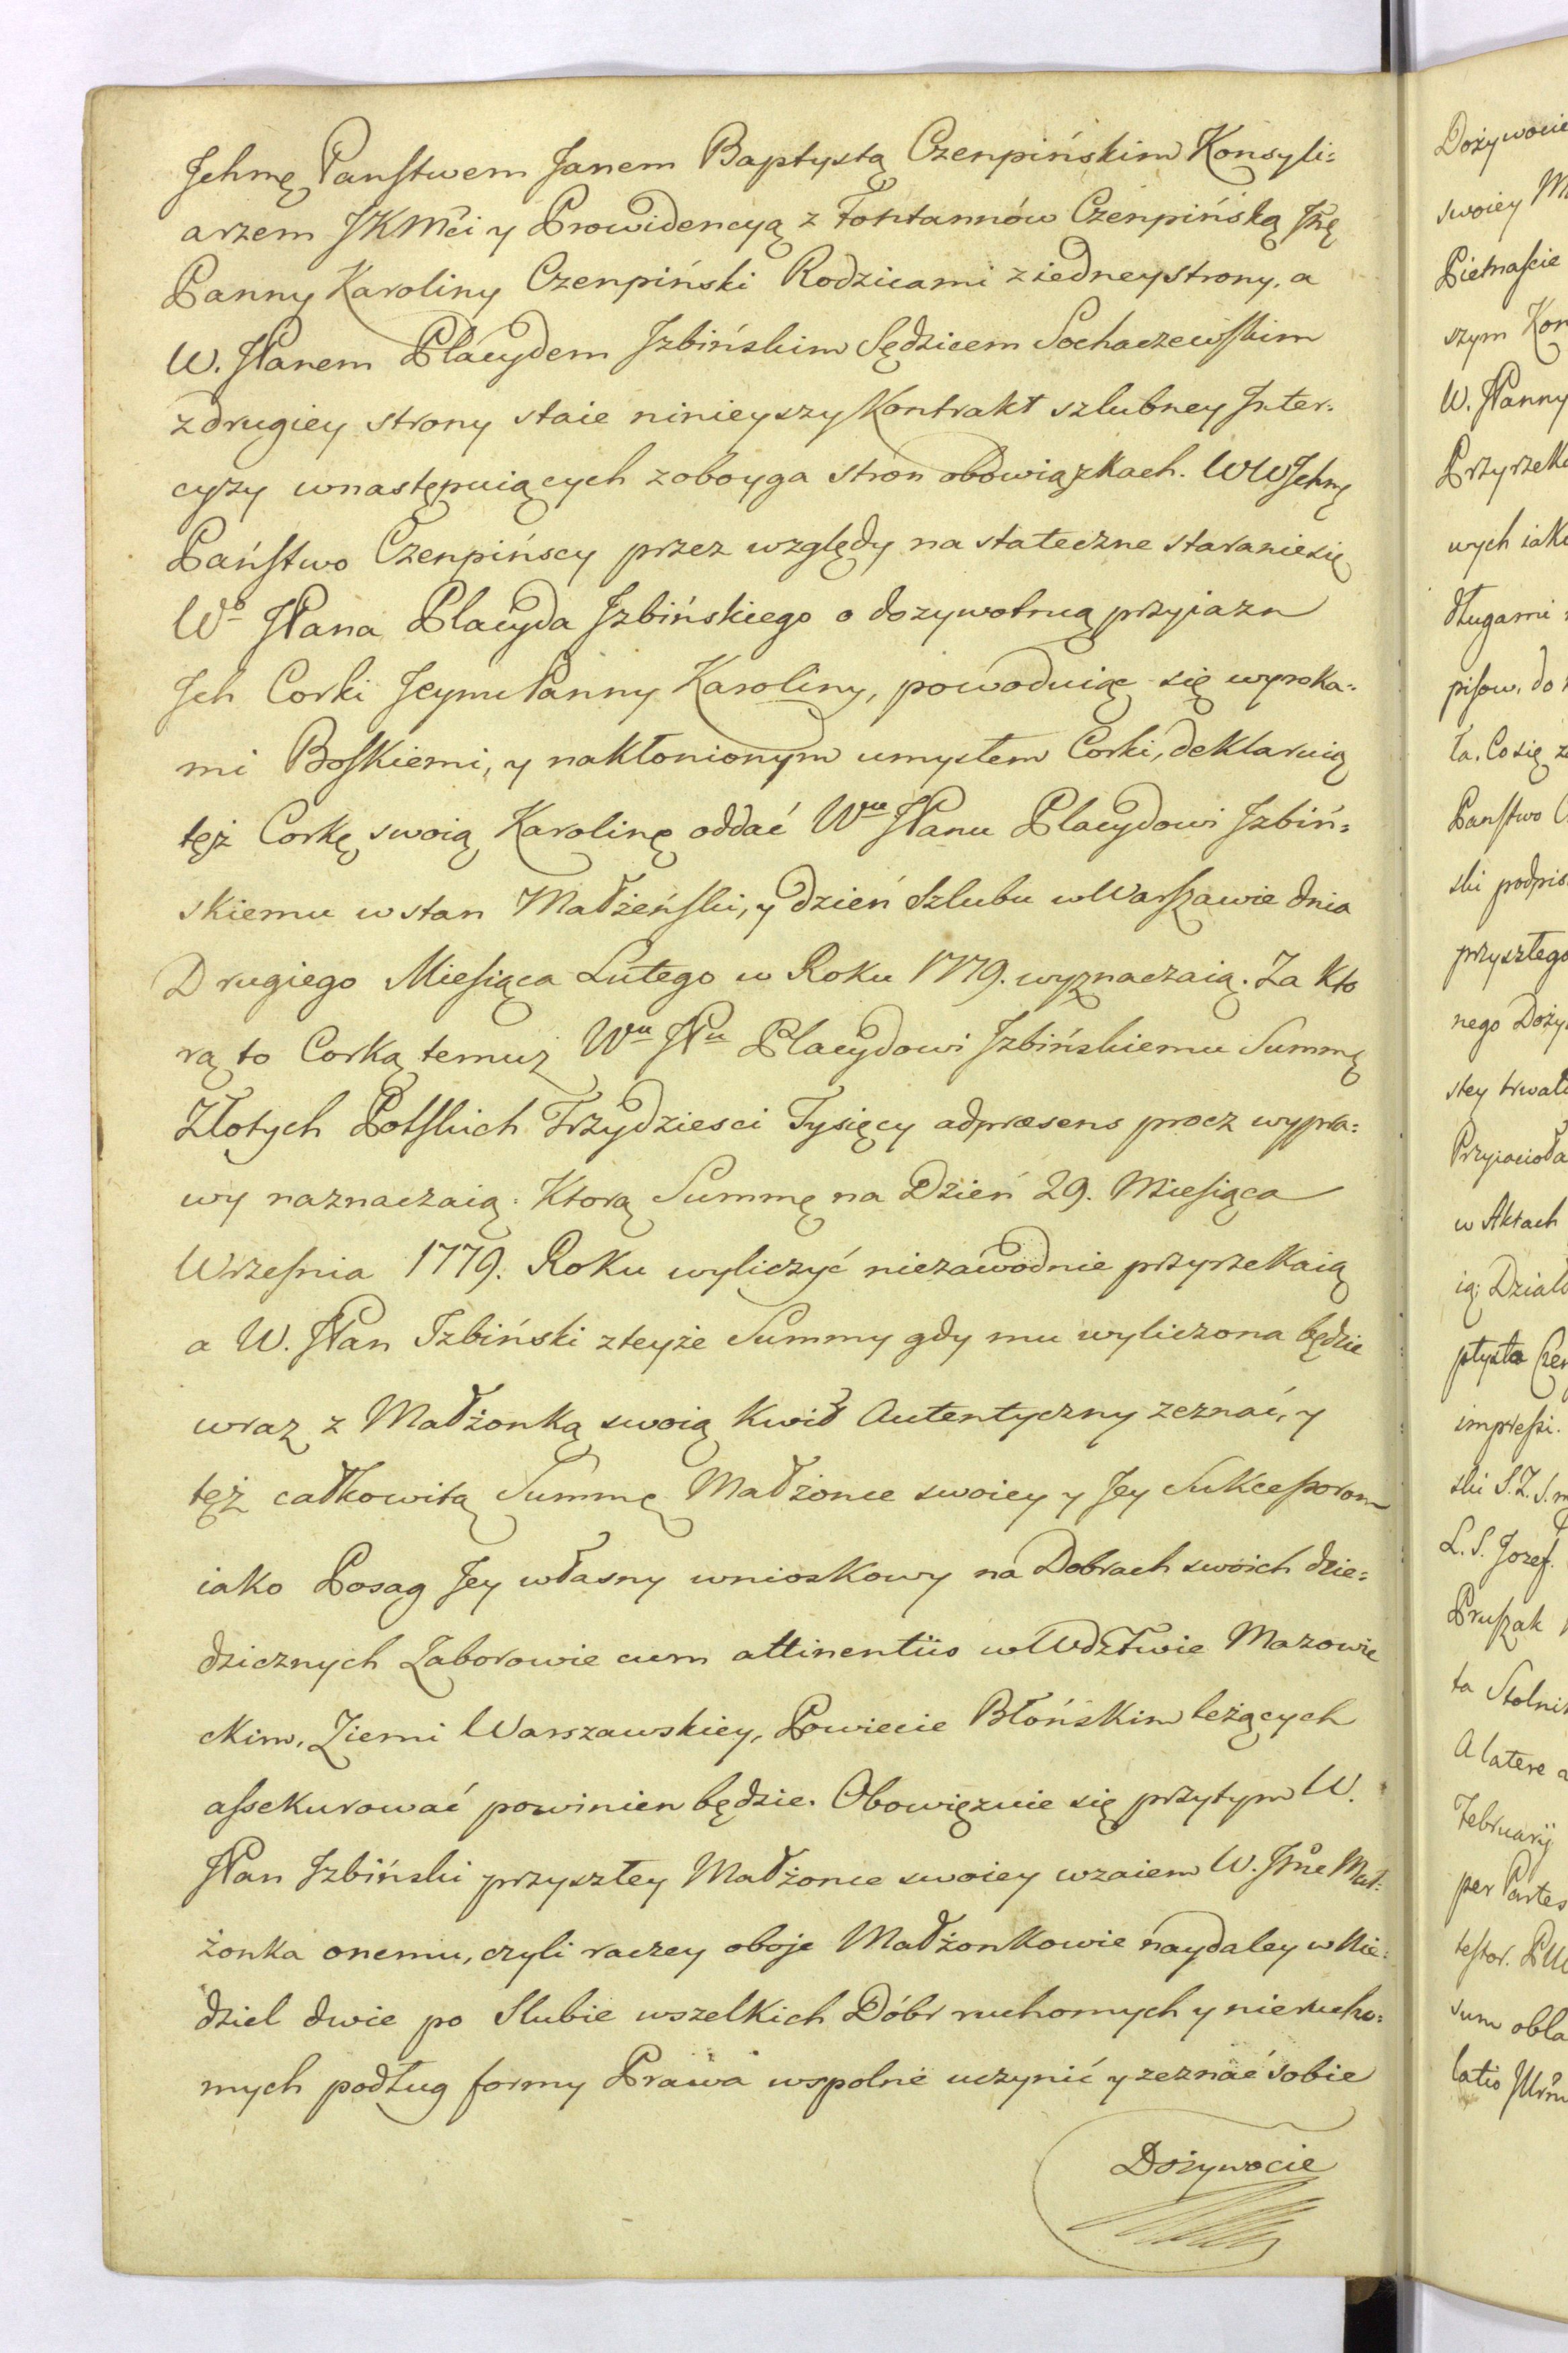 Jchmę Panstwem Janem Baptystą Czenpińskim Konsyli=
arzem JKMci y Prowidencyą z Fontannów Czenpińską Jmę
Panny Karoliny Czenpiński Rodzicami z iedney strony, a
W. JPanem Placydem Jzbińskim Sędzicem Sochaczewskim
z drugiey strony staie ninieyszy Kontrakt szlubney Inter=
cyzy wnastępuiących z oboyga stron obowiązkach. WWJchmę
Państwo Czenpińscy przez względy na stateczne staraniesię
Wo JPana Placyda Jzbińskiego o dozywotnią przyiazn
Jch Corki Jeymć Panny Karoliny, powoduiąc się wyroka=
mi Boskiemi, y nakłonionym umysłem Corki, deklaruią
tęż Corkę swoią Karolinę oddać Wu JPanu Placydowi Jzbiń=
skiemu w stan Małżeński, y dzień Szlubu w Warszawie dnia
Drugiego Miesiąca Lutego w Roku 1779. wyznaczaią. Za kto
rą to Corką temuż Wu JPu Placydowi Jzbińskiemu Summę
Złotych Polskich Trzydziesci Tysięcy adpræsens procz wypra=
wy naznaczaią. Ktorą Summę na Dzień 29. Miesiąca
Wrzesnia 1779. Roku wyliczyć niezawodnie przyrzekaią
a W. JPan Izbiński zteyże Summy gdy mu wyliczona będzie
wraz z Małżonką swoią Kwit Autentyczny zeznać, y
tęż całkowitą Summę Małżonce swoiey y Jey Sukcessorom
iako Posag Jey własny wnioskowy na Dobrach swoich dzie=
dzicznych Zaborowie cum attinentiis w Wdztwie Mazowie
ckim, Ziemi Warszawskiey, Powiecie Błońskim leżących
assekurować powinien będzie. Obowięzuie się przytym W.
JPan Jzbiński przyszłey Małżonce swoiey wzaiem W. Jmę Mał=
żonka onemu, czyli raczey oboje Małżonkowie naydaley w Nie=
dziel dwie po Slubie wszelkich Dóbr ruchomych y nierucho=
mych podług formy Prawa wspolne uczynić y zeznać sobie
Dożywocie
Dożywocie
swoiey
Pietnascie
szym
W. JPanny
wych
długami
pisow. do
ła. Co się
Panstwo
ski
przyszłego
nego
stey
w Aktach
impressi.
ski S.Z.
L.S. Jozef.
Pruszak
ta
A latere
Februarij
per Partes
sum